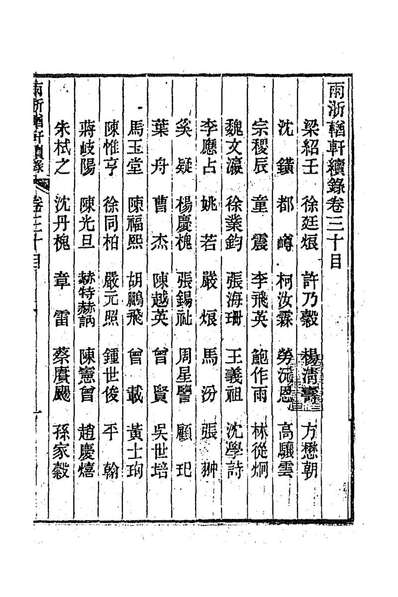 兩浙輶軒續錄卷三十目
梁紹壬 徐廷烺 許乃穀 楊清 方懋朝
沈鐄 都嶟 柯汝霖 勞沅恩 高驤雲
宗稷辰 童震 李飛英 鮑作雨 林從炯
魏文瀛 徐業鈞 張海珊 王義祖 沈學詩
李應占 姚若 嚴烺 馬汾 張翀
奚疑 楊慶槐 張錫祉 周星譽 顧玘
葉舟 曹杰 陳越英 曾賢 吳世培
馬玉堂 陳福熙 胡鵬飛 曾載 黃士珣
陳惟亨 徐同柏 嚴元照 鍾世俊 平翰
蔣岐陽 陳光旦 赫特赫訥 陳憲曾 趙慶熺
朱栻之 沈丹槐 章雷 蔡賡颺 孫家穀
兩浙輶軒續錄 卷三十目